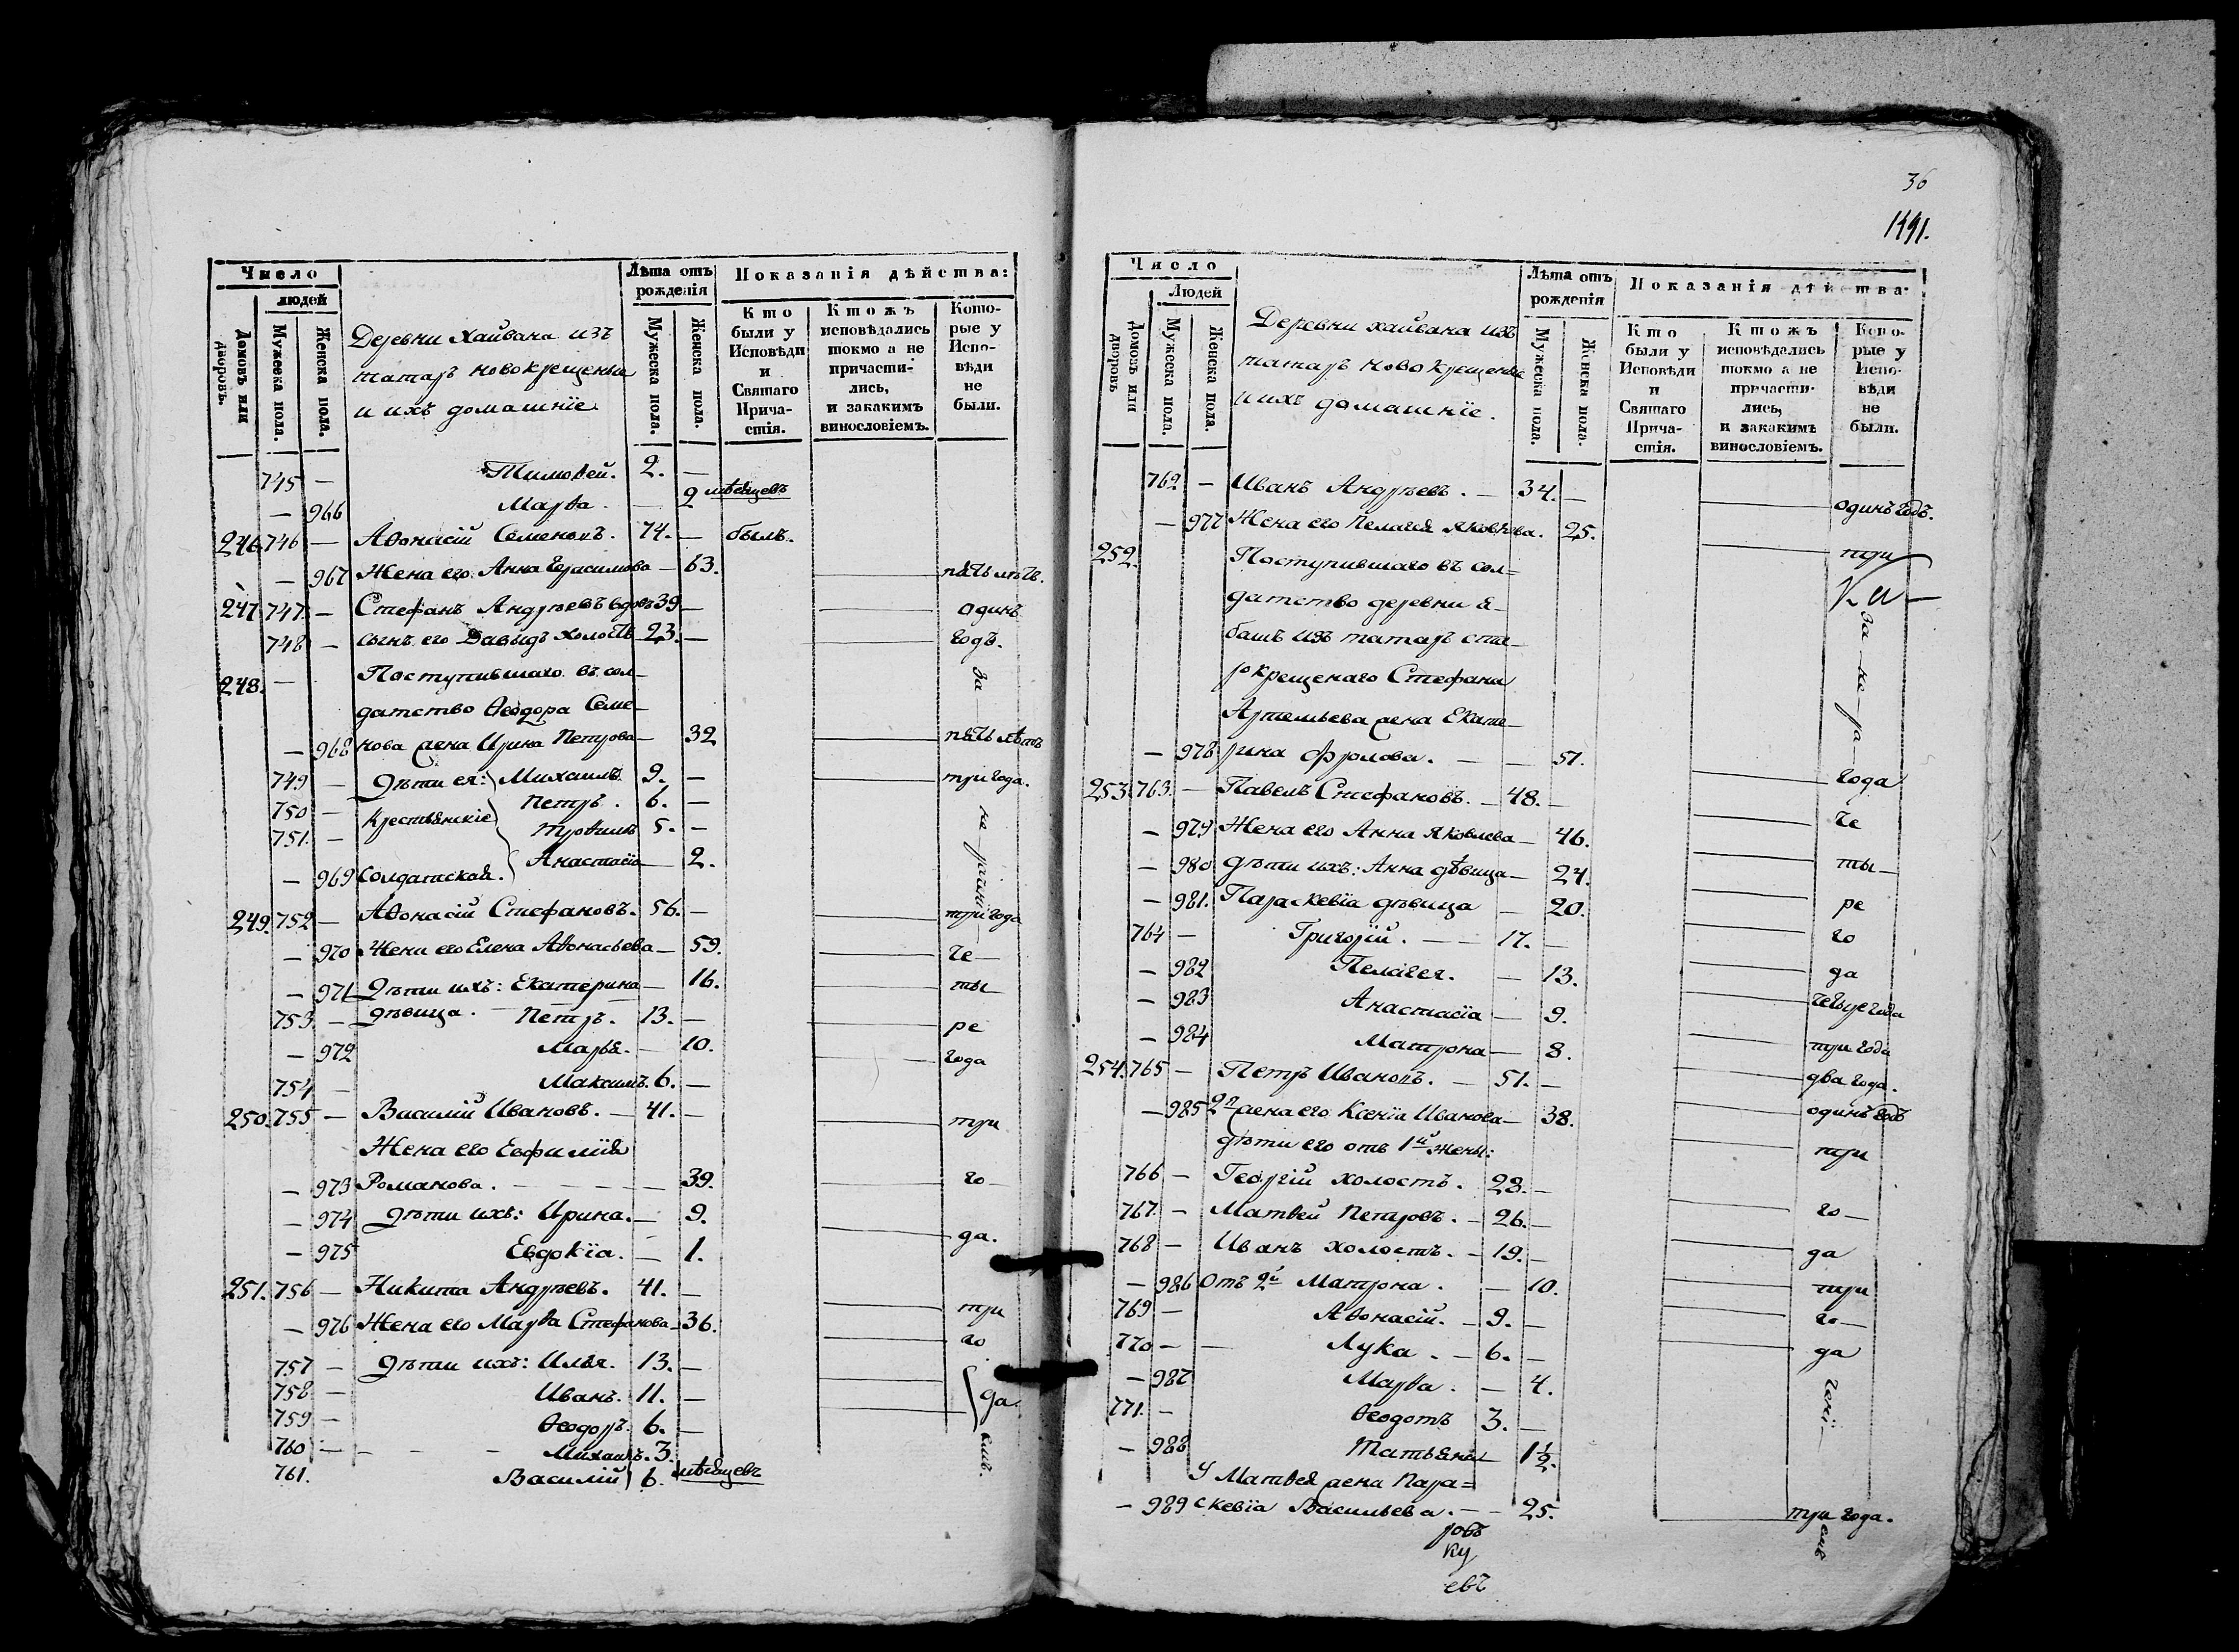 Число
людей
Домовъ или дворовъ.
Мужеска пола.
Женска пола.
Деревни Хайвана изъ
татаръ новокрещеныя
и ихъ домашнїе.
Лѣта отъ рожденія
Мужеска пола.
Женска пола.
Показанія дѣйства:
Кто были у Исповѣди и Святаго Причастія.
Ктожъ исповѣдались токмо а не причастились, и закакимъ винословіемъ.
Которые у Исповѣди не были.
745 — Тимовей. 2. —
— 966 Марѳа. — 2 мѣсяцевъ
246. 746 — Аѳонасій Семеновъ. 74. — былъ.
— 967 Жена его Анна Герасимова — 63. — пять лѣтъ.
247. 747. — Стефанъ Андрѣевъ вдовъ 39 — — одинъ
748 — сынъ его Давыдъ холостъ 23. — — годъ.
248. — Поступившаго въ сол- за
датство Ѳеодора Семе-
— 968 нова жена Ирина Петрова — 32 — пять лѣтъ
749 — Дѣти ея: Михаилъ 9. — — три года.
750 — крестьянскіе Петръ. 6. —
751. — Трофимъ 5. —
— 969 солдатская. Анастасїа — 2.
249. 752 — Аѳонасій Стефановъ. 56. — — три года
— 970 Жена его Елена Аѳонасьева — 59. — че-
— 971 Дѣти ихъ: Екатерина — 16. — ты-
753 — дѣвица. — Петръ. 13. — — ре
— 972 Марья. — 10. — года
754 — Максимъ. 6. —
250. 755 — Василій Ивановъ. — 41. — — три
Жена его Евфимїя
— 973 Романова. — 39. — го-
— 974 Дѣти ихъ: Ирина. — 9. — да.
— 975 Евдокїа. — 1.
251. 756 — Никита Андрѣевъ. 41. — — три
— 976 Жена его Марѳа Стефанова — 36. — го
757 — Дѣти ихъ: Илья. 13. — — да.
758 — Иванъ. 11. —
759 — Ѳеодоръ. 6. —
760 — Михаилъ. 3.
761. Василій 6. мѣсяцевъ
36
1491.
Число
Людей
Домовъ или дворовъ
Мужеска пола.
Женска пола.
Деревни хайвана изъ
татаръ новокрещеныя
и ихъ домашнїе.
Лѣта отъ рожденія
Мужеска пола.
Женска пола.
Показанія дѣйства:
Кто были у Исповѣди и Святаго Причастія.
Ктожъ исповѣдались токмо а не причастились, и закакимъ винословіемъ.
Которые у Исповѣди не были.
762 — Иванъ Андрѣевъ. — 34. — — одинъ годъ.
— 977 Жена его Пелагея Яковлева. 25. — три
252. Поступившаго въ сол-
датство деревни Я- за не ра
башъ изъ татаръ ста-
рокрещенаго Стефана
Артемьева жена Екате-
— 978 рина Фролова. — — 51. — года
253. 763. — Павелъ Стефановъ. — 48. — — че
— 979 Жена его Анна Яковлева — 46. — ты-
— 980 дѣти ихъ: Анна дѣвица — 24. — ре
— 981. Параскевїа дѣвица — 20. — го
764 — Григорїй. — 17. — — да
— 982 Пелагея. — 13. — четыре года
— 983 Анастасїа — 9. — три года
— 984 Матрона — 8. — два года.
254. 765 — Петръ Ивановъ. — 51. — — одинъ годъ
— 985 2я жена его Ксенїа Иванова — 38. — три
дѣти его отъ 1й жены:
766 — Георгій холостъ. 28. — — го-
767. — Матвей Петровъ. — 26. — — да
768 — Иванъ холостъ. — 19. — — три
— 986 Отъ 2й Матрона. — 10. — го-
769 — Аѳонасій. — 9. — — да
770 — Лука. — 6. —
— 987 Марѳа. — 4.
771. — Ѳеодотъ 3. —
— 988 Татьяна — 1½.
У Матвея жена Пара-
— 989 скевїа Васильева. — 25. — три года.